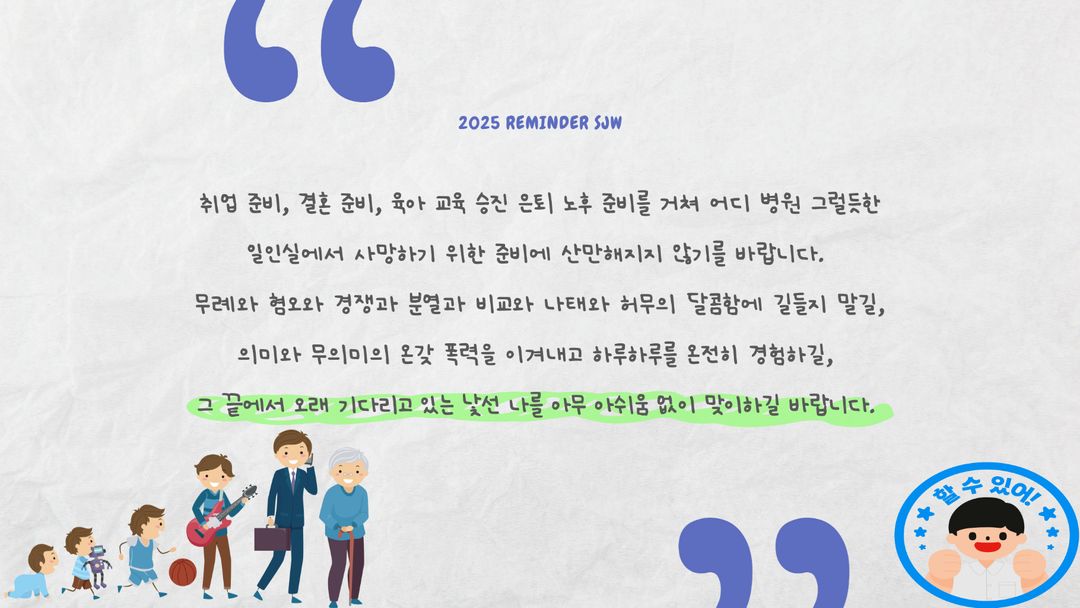 2025 REMINDER SJW
취업 준비, 결혼 준비, 육아 교육 승진 은퇴 노후 준비를 거쳐 어디 병원 그럴듯한
일인실에서 사망하기 위한 준비에 산만해지지 않기를 바랍니다.
무례와 혐오와 경쟁과 분열과 비교와 나태와 허무의 달콤함에 길들지 말길,
의미와 무의미의 온갖 폭력을 이겨내고 하루하루를 온전히 경험하길,
그 끝에서 오래 기다리고 있는 낯선 나를 아무 아쉬움 없이 맞이하길 바랍니다.
할 수 있어!